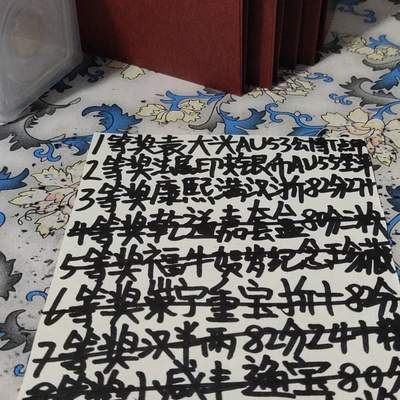 1等奖袁大头AU53公博
2等奖法属印支银介AU55
3等奖康熙满汉浙82分24
4等奖乾道嘉套盒80分三枚
5等奖福牛贺岁纪念珍藏
6等奖崇宁重宝折十82分
7等奖汉半两82分24十
8等奖咸丰通宝80分